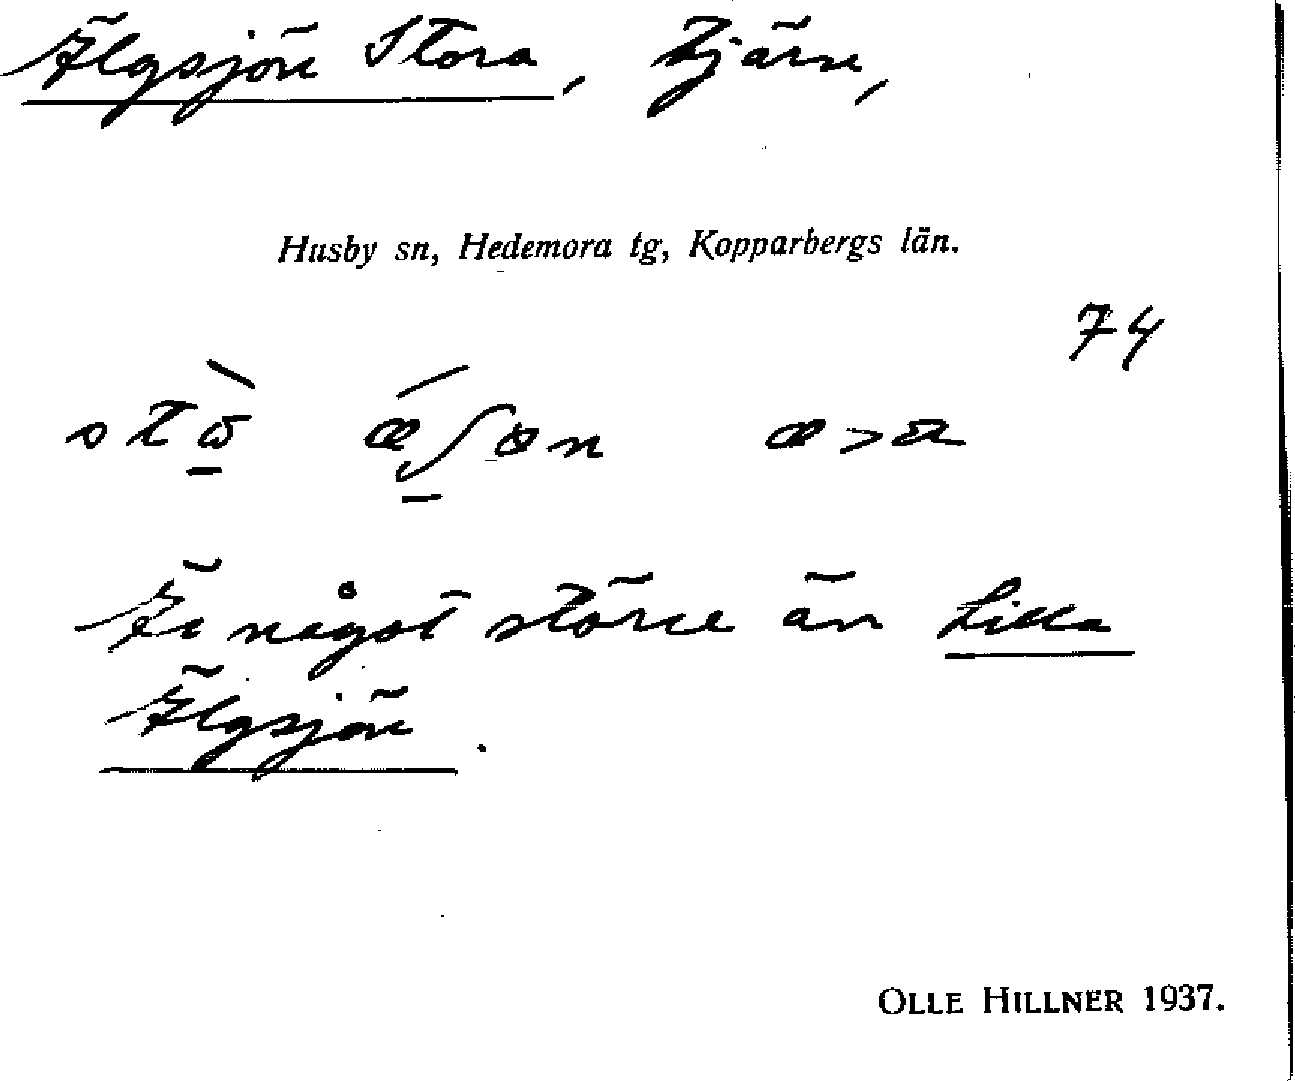 Älgsjön Stora, Tjärn,
Husby sn, Hedemora tg, Kopparbergs län.
74
Är något större än Lilla
Älgsjön.
OLLE HILLNER 1937.